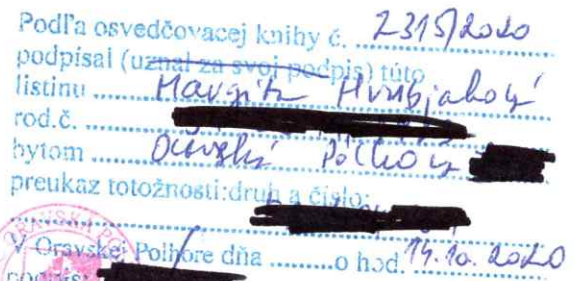 Podľa osvedčovacej knihy č. 2315/2020
podpísal (uznal za svoj podpis) túto
listinu Margita
rod.č.
bytom Oravská Polhora
preukaz totožnosti:druh a číslo:
V Oravskej Polhore dňa ........o hod. 14.10.2020
podpis: